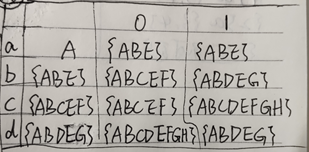 0 1
a A {ABE} {ABE}
b {ABE} {ABCEF} {ABDEG}
c {ABCEF} {ABCEF} {ABCDEFGH}
d {ABDEG} {ABCDEFGH} {ABDEG}